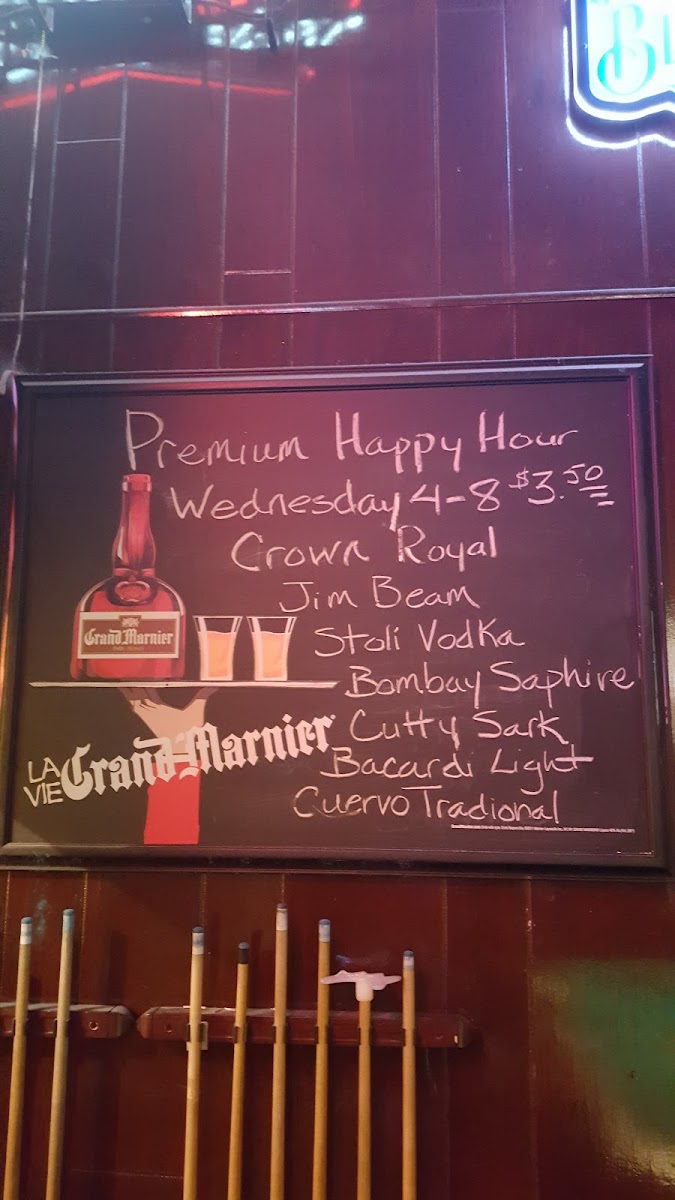 Premium Happy Hour
Wednesday 4-8 $3.50
Crown Royal
Jim Beam
Stoli Vodka
Bombay Saphire
Cutty Sark
Bacardi Light
Cuervo Tradional
Grand Marnier
LA VIE Grand Marnier